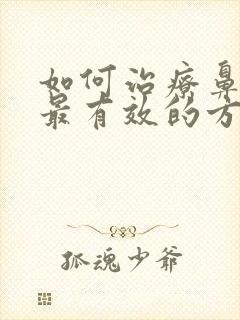 如何治療鼻
最有效的方
孤魂少爷